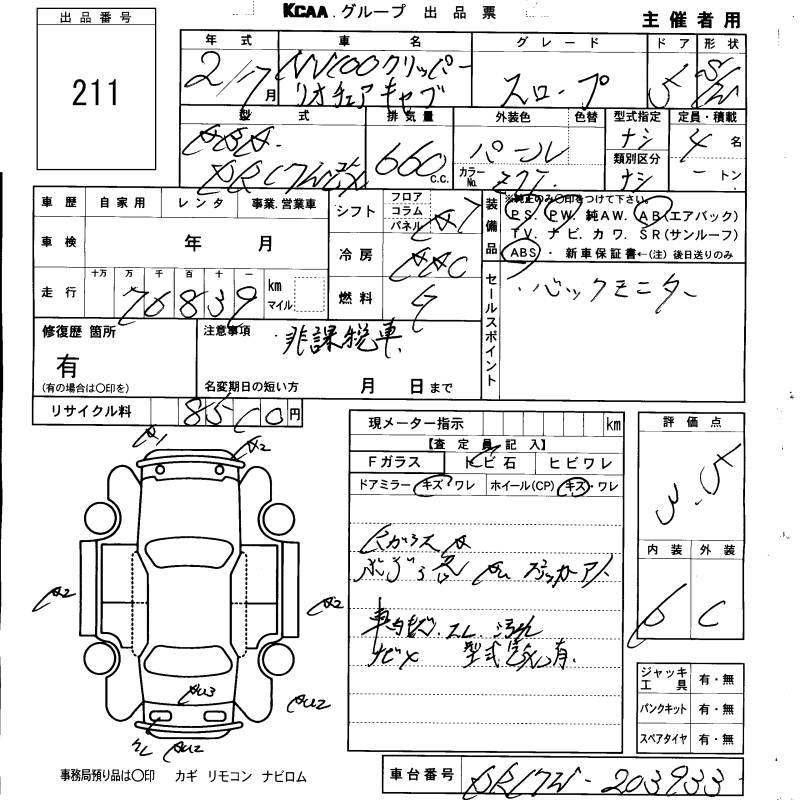 KCAA グループ 出品票
主催者用
出品番号
211
年式
2/7月
車名
NV100クリッパー
リオチェアキャブ
グレード
スロープ
ドア
5
形状
型式
DR17W改
排気量
660 c.c.
外装色
パール
色替
カラーNo.
Z7T
型式指定
ナシ
類別区分
ナシ
定員・積載
4名
ートン
車歴 自家用 レンタ 事業.営業車
車検 年 月
走行 十万 万 千 百 十 一
70839 km マイル
シフト フロア コラム パネル
冷房 AAC
燃料
装備品
※純正のみ〇印をつけて下さい。
PS. PW. 純AW. AB(エアバック)
TV. ナビ. カワ. SR(サンルーフ)
ABS・新車保証書←(注)後日送りのみ
セールスポイント
・バックモニター
修復歴 箇所
有
(有の場合は〇印を)
注意事項
・非課税車
名変期日の短い方 月 日まで
リサイクル料 8500円
現メーター指示 km
【査定員記入】
Fガラス トビ石 ヒビワレ
ドアミラー キズ・ワレ ホイール(CP) キズ・ワレ
Rガラス A
車内キズ.スレ.汚れ
ナビ× 型式 有.
評価点
3.5
内装 外装
C
ジャッキ工具 有・無
パンクキット 有・無
スペアタイヤ 有・無
A1
A2
A2
A2
AU3
AU2
AU2
事務局預り品は〇印 カギ リモコン ナビロム
車台番号 DR17W-203933